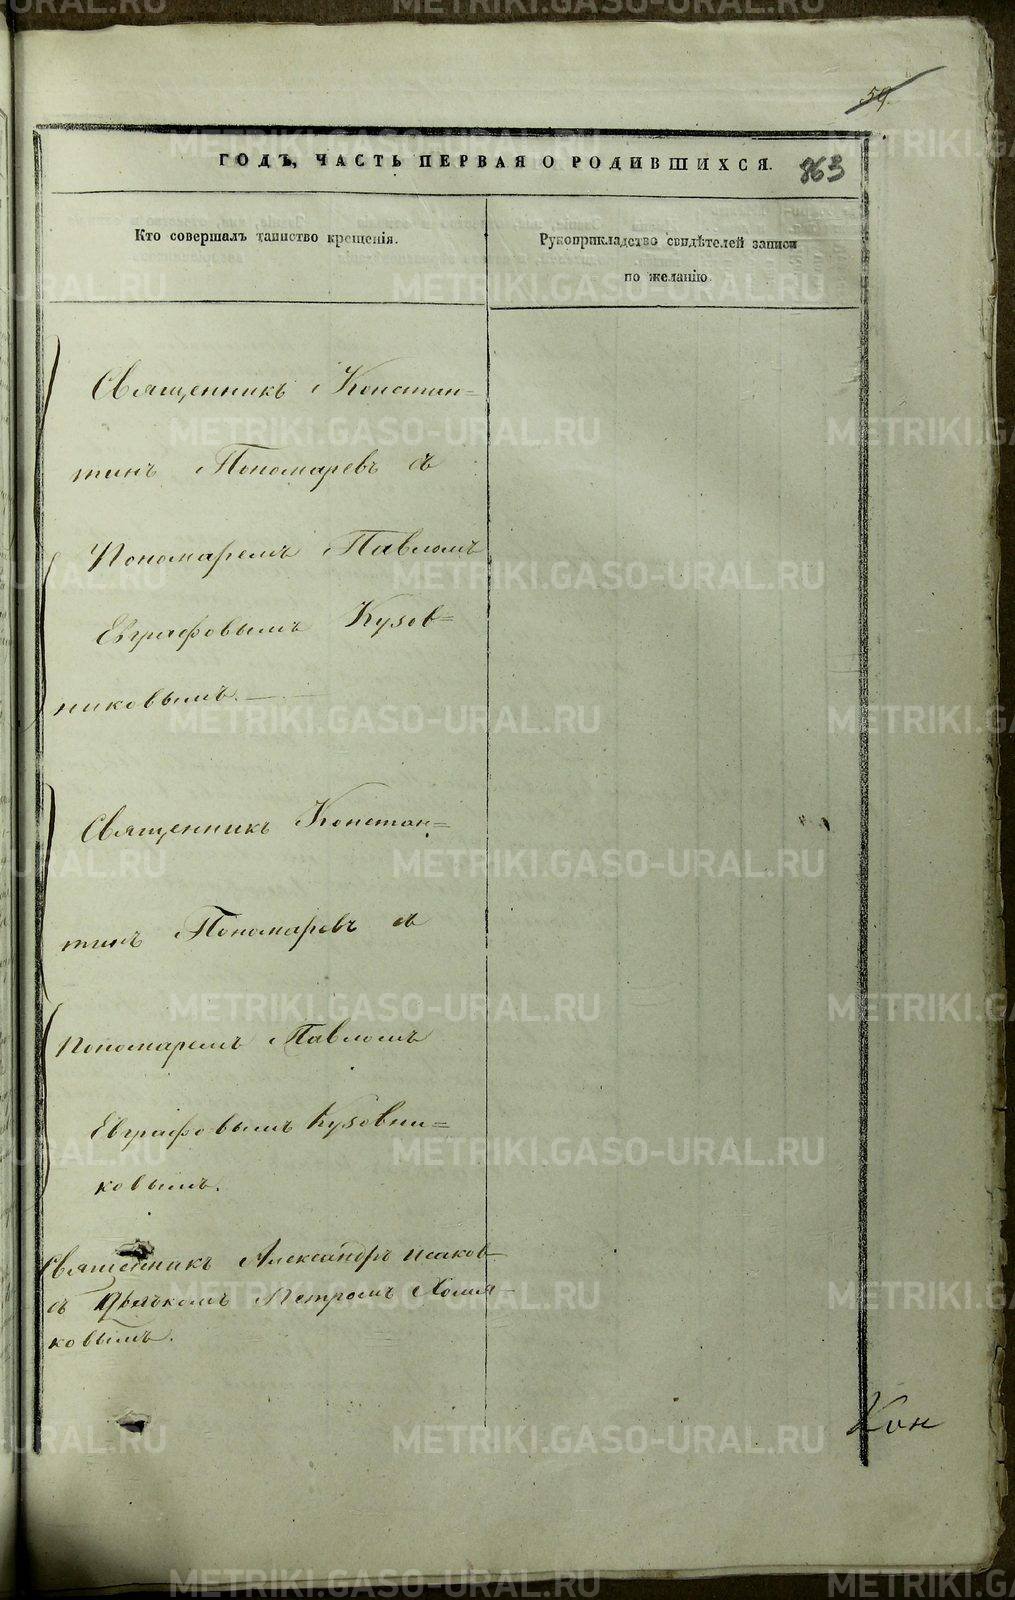 59.
ГОДЪ, ЧАСТЬ ПЕРВАЯ О РОДИВШИХСЯ.
863
Кто совершалъ таинство крещенія.
Рукоприкладство свидѣтелей записи
по желанію.
Священникъ Констан=
тинъ Пономаревъ съ
Пономаремъ Павломъ
Евграфовымъ Кузов=
никовымъ.
Священникъ Констан=
тинъ Пономаревъ съ
Пономаремъ Павломъ
Евграфовымъ Кузовни=
ковымъ.
Священникъ Александръ Исаков
съ Дьячкомъ Петромъ Холмя-
ковымъ.
Кон
METRIKI.GASO-URAL.RU